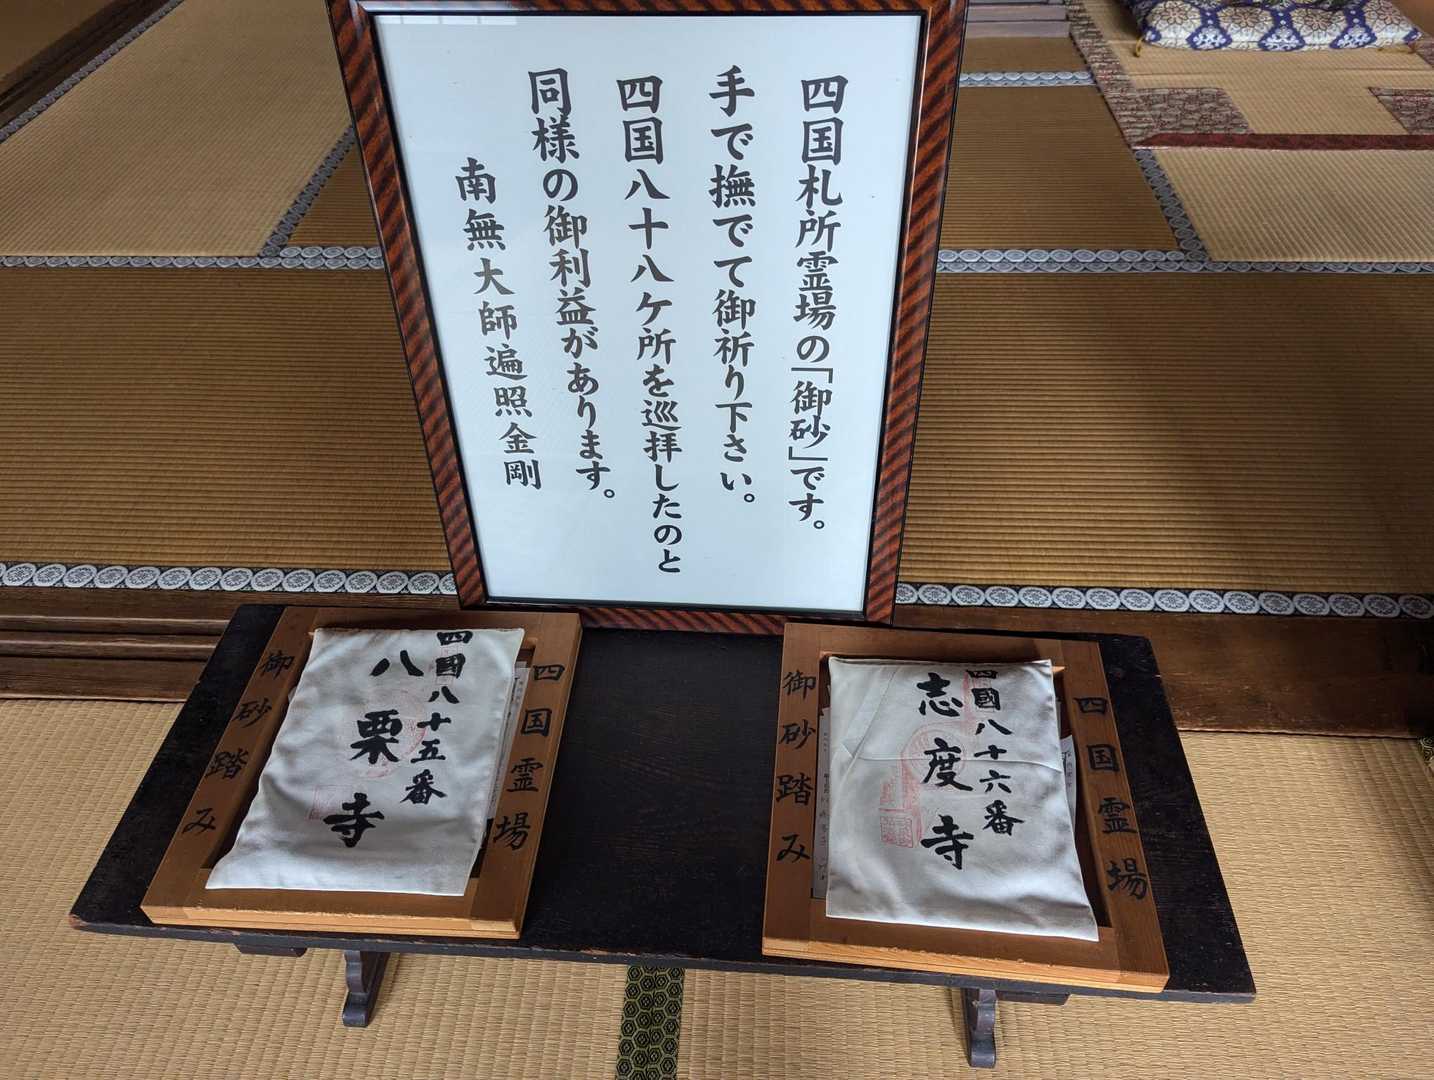 四国札所霊場の「御砂」です。
手で撫でて御祈り下さい。
四国八十八ケ所を巡拝したのと
同様の御利益があります。
南無大師遍照金剛
四国霊場
四國八十五番
八栗寺
御砂踏み
四国霊場
四國八十六番
志度寺
御砂踏み